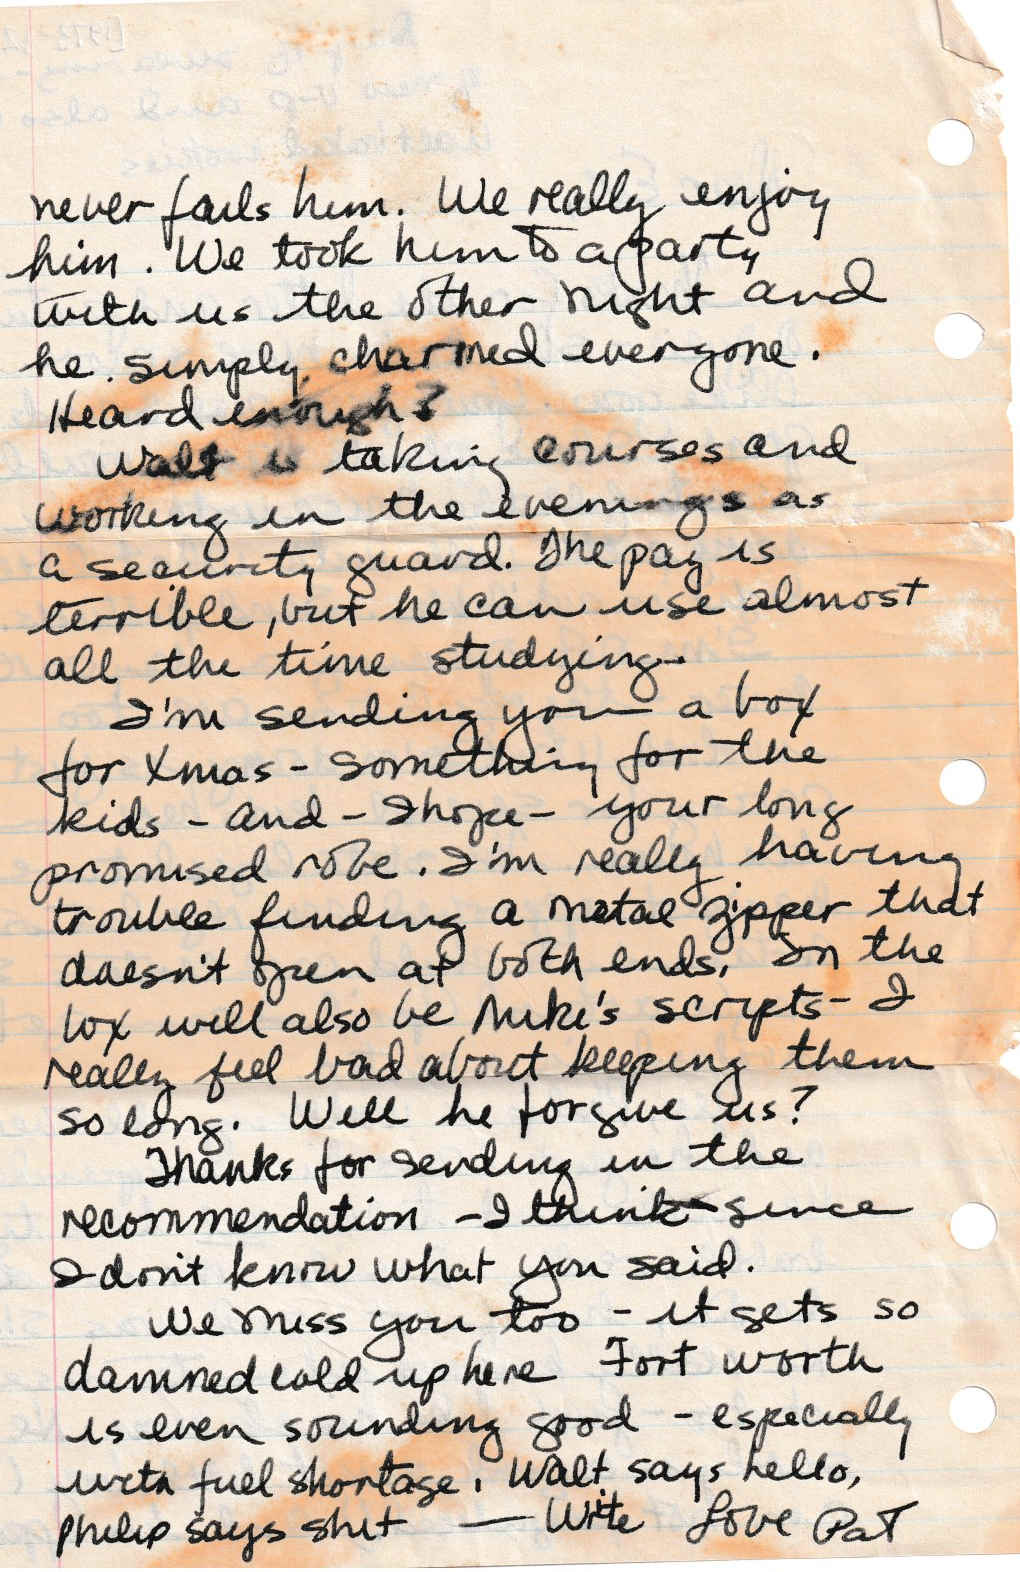 never fails him. We really enjoy
him. We took him to a party
with us the other night and
he simply charmed everyone.
Heard enough?
Walt is taking courses and
working in the evenings as
a security guard. The pay is
terrible, but he can use almost
all the time studying.
I'm sending you a box
for Xmas - something for the
kids - and - I hope - your long
promised robe. I'm really having
trouble finding a metal zipper that
doesn't open at both ends. In the
box will also be Mike's scripts - I
really feel bad about keeping them
so long. Will he forgive us?
Thanks for sending in the
recommendation - I think - since
I don't know what you said.
We miss you too - it gets so
damned cold up here Fort Worth
is even sounding good - especially
with fuel shortage. Walt says hello,
Philip says shit — Write Love Pat